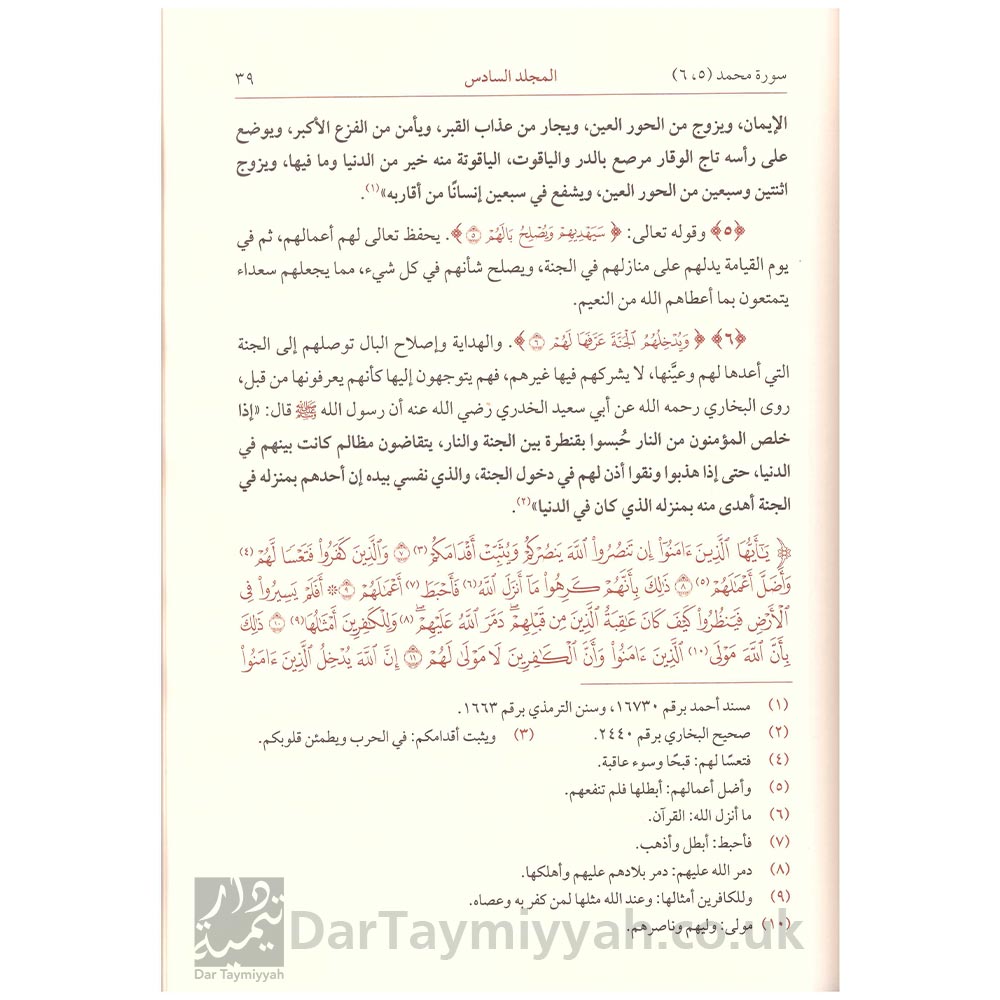 سورة محمد (٥، ٦) المجلد السادس ٣٩
الإيمان، ويزوج من الحور العين، ويجار من عذاب القبر، ويأمن من الفزع الأكبر، ويوضع
على رأسه تاج الوقار مرصع بالدر والياقوت، الياقوتة منه خير من الدنيا وما فيها، ويزوج
اثنتين وسبعين من الحور العين، ويشفع في سبعين إنسانًا من أقاربه»(١).
﴿٥﴾ وقوله تعالى: ﴿ سَيَهْدِيهِمْ وَيُصْلِحُ بَالَهُمْ ٥ ﴾. يحفظ تعالى لهم أعمالهم، ثم في
يوم القيامة يدلهم على منازلهم في الجنة، ويصلح شأنهم في كل شيء، مما يجعلهم سعداء
يتمتعون بما أعطاهم الله من النعيم.
﴿٦﴾ ﴿ وَيُدْخِلُهُمُ ٱلْجَنَّةَ عَرَّفَهَا لَهُمْ ٦ ﴾. والهداية وإصلاح البال توصلهم إلى الجنة
التي أعدها لهم وعيَّنها، لا يشركهم فيها غيرهم، فهم يتوجهون إليها كأنهم يعرفونها من قبل،
روى البخاري رحمه الله عن أبي سعيد الخدري رضي الله عنه أن رسول الله ﷺ قال: «إذا
خلص المؤمنون من النار حُبسوا بقنطرة بين الجنة والنار، يتقاضون مظالم كانت بينهم في
الدنيا، حتى إذا هذبوا ونقوا أذن لهم في دخول الجنة، والذي نفسي بيده إن أحدهم بمنزله في
الجنة أهدى منه بمنزله الذي كان في الدنيا»(٢).
﴿ يَٰٓأَيُّهَا ٱلَّذِينَ ءَامَنُوٓاْ إِن تَنصُرُواْ ٱللَّهَ يَنصُرْكُمْ وَيُثَبِّتْ أَقْدَامَكُمْ(٣) ٧ وَٱلَّذِينَ كَفَرُواْ فَتَعْسًا لَّهُمْ(٤)
وَأَضَلَّ أَعْمَٰلَهُمْ(٥) ٨ ذَٰلِكَ بِأَنَّهُمْ كَرِهُواْ مَآ أَنزَلَ ٱللَّهُ(٦) فَأَحْبَطَ(٧) أَعْمَٰلَهُمْ ٩ ۞ أَفَلَمْ يَسِيرُواْ فِى
ٱلْأَرْضِ فَيَنظُرُواْ كَيْفَ كَانَ عَٰقِبَةُ ٱلَّذِينَ مِن قَبْلِهِمْۖ دَمَّرَ ٱللَّهُ عَلَيْهِمْۖ(٨) وَلِلْكَٰفِرِينَ أَمْثَٰلُهَا(٩) ١٠ ذَٰلِكَ
بِأَنَّ ٱللَّهَ مَوْلَى(١٠) ٱلَّذِينَ ءَامَنُواْ وَأَنَّ ٱلْكَٰفِرِينَ لَا مَوْلَىٰ لَهُمْ ١١ إِنَّ ٱللَّهَ يُدْخِلُ ٱلَّذِينَ ءَامَنُواْ
(١) مسند أحمد برقم ١٦٧٣٠، وسنن الترمذي برقم ١٦٦٣.
(٢) صحيح البخاري برقم ٢٤٤٠. (٣) ويثبت أقدامكم: في الحرب ويطمئن قلوبكم.
(٤) فتعسًا لهم: قبحًا وسوء عاقبة.
(٥) وأضل أعمالهم: أبطلها فلم تنفعهم.
(٦) ما أنزل الله: القرآن.
(٧) فأحبط: أبطل وأذهب.
(٨) دمر الله عليهم: دمر بلادهم عليهم وأهلكها.
(٩) وللكافرين أمثالها: وعند الله مثلها لمن كفر به وعصاه.
(١٠) مولى: وليهم وناصرهم.
دار تيمية
Dar Taymiyyah
DarTaymiyyah.co.uk